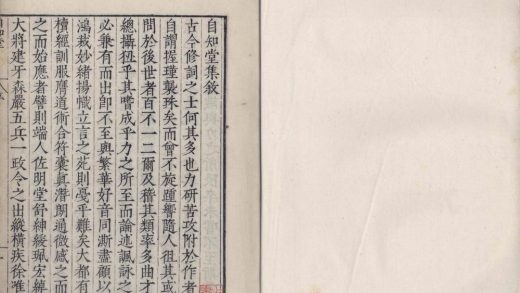 自知堂集敘
古今修詞之士何其多也力研苦攻附於作者
自謂握瑾襲珠矣而曾不旋踵響隨人徂其或
問於後世者百不一二爾及稽其類率多曲才
總攝狃乎其嗜成乎力之所至而論述諷詠之
必兼有而出卽不至與繁華好音同澌盡顧以
鴻裁妙緒揚幟立言之苑則戞乎難矣大都有
櫝經訓服膺道術合符囊眞潛朗通微感之而
之而始應者譬則端人佐明堂舒紳緩珮宏綽
大將建牙森嚴五兵一政令之出縱橫疾徐惟